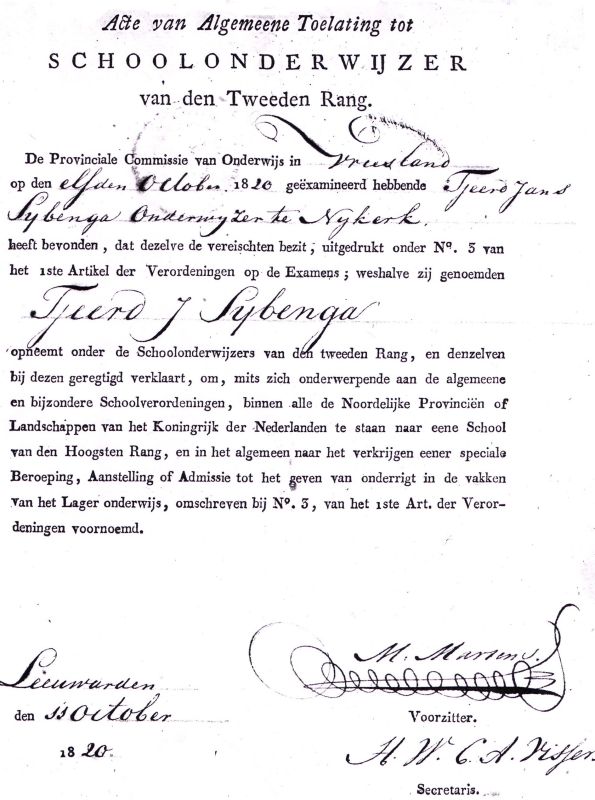 Acte van Algemeene Toelating tot
SCHOOLONDERWIJZER
van den Tweeden Rang.
De Provinciale Commissie van Onderwijs in Vriesland
op den elfden October 1820 geëxamineerd hebbende Tjeerd Jans
Sybenga Onderwyzer te Nykerk.
heeft bevonden, dat dezelve de vereischten bezit, uitgedrukt onder No. 3 van
het 1ste Artikel der Verordeningen op de Examens; weshalve zij genoemden
Tjeerd J Sybenga
opneemt onder de Schoolonderwijzers van den tweeden Rang, en denzelven
bij dezen geregtigd verklaart, om, mits zich onderwerpende aan de algemeene
en bijzondere Schoolverordeningen, binnen alle de Noordelijke Provinciën of
Landschappen van het Koningrijk der Nederlanden te staan naar eene School
van den Hoogsten Rang, en in het algemeen naar het verkrijgen eener speciale
Beroeping, Aanstelling of Admissie tot het geven van onderrigt in de vakken
van het Lager onderwijs, omschreven bij No. 3, van het 1ste Art. der Veror-
deningen voornoemd.
M. Martens.
Leeuwarden
den 11 October
Voorzitter.
1820.
H. W. C. A. Visser.
Secretaris.